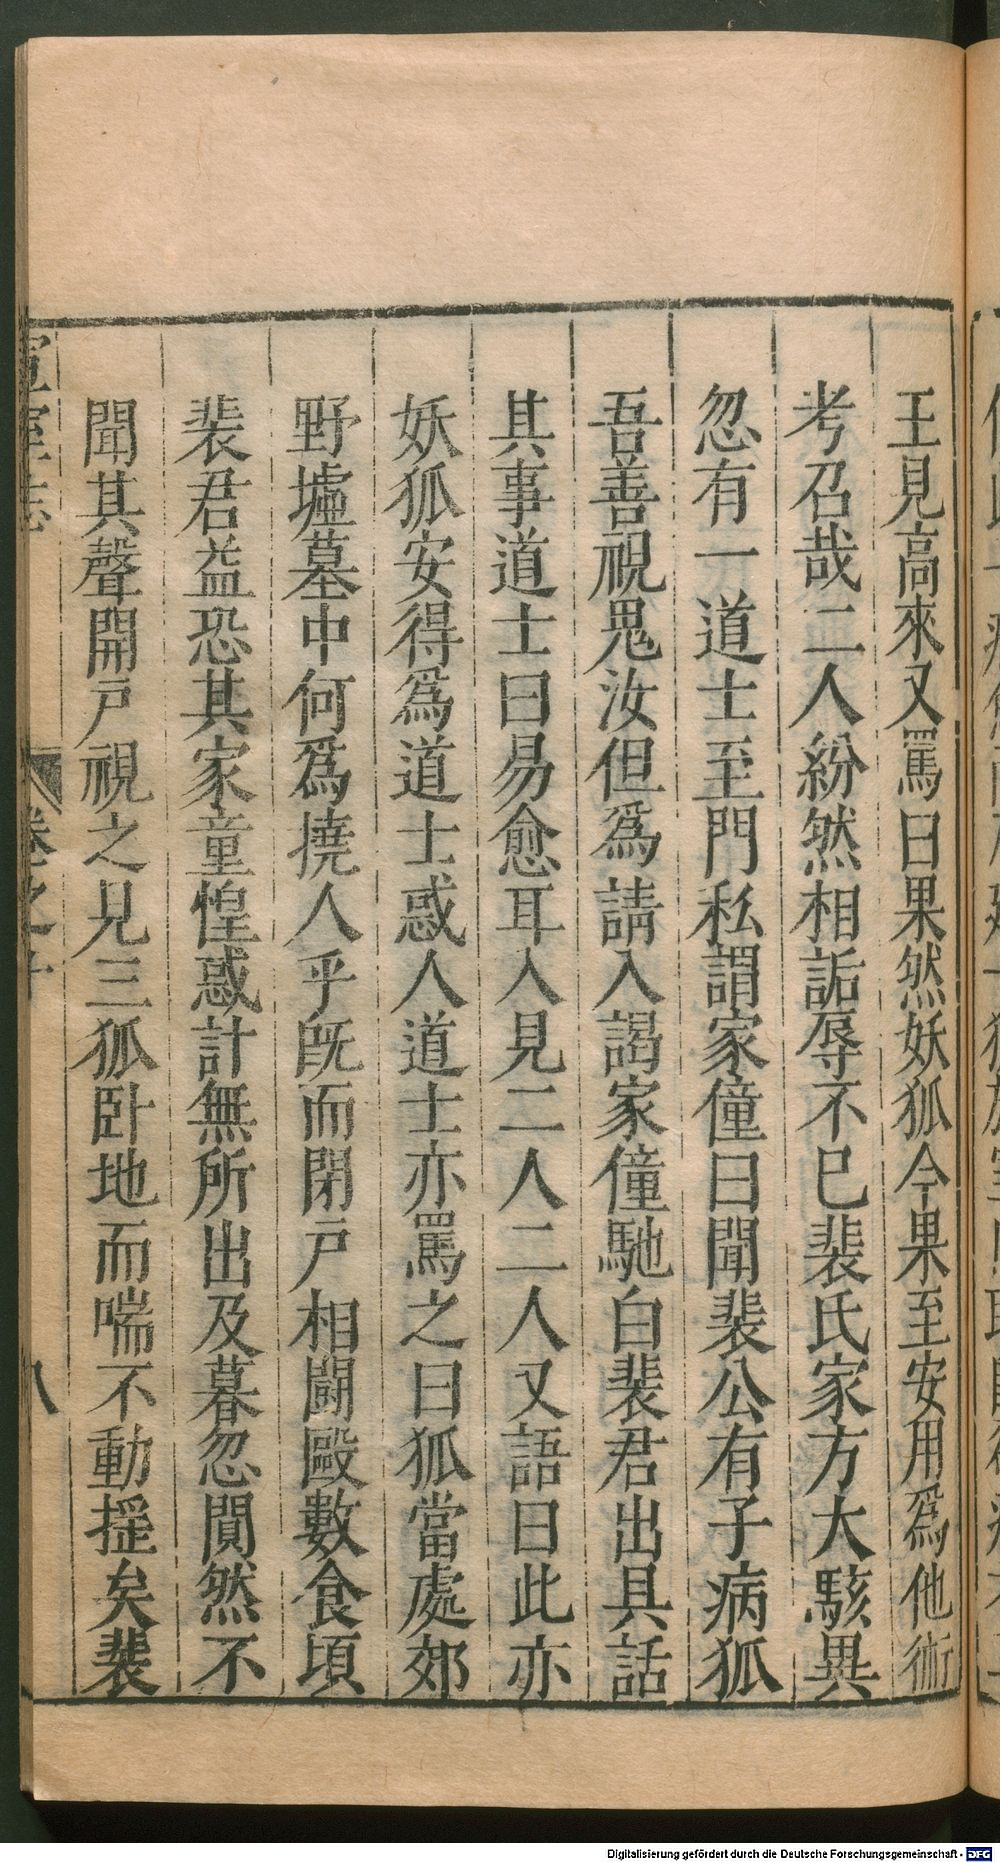 王見高來又罵曰果然妖狐今果至安用爲他術
考召哉二人紛然相詬辱不已裴氏家方大駭異
忽有一道士至門私謂家僮曰聞裴公有子病狐
吾善視鬼汝但爲請入謁家僮馳白裴君出具話
其事道士曰易愈耳入見二人二人又語曰此亦
妖狐安得爲道士惑人道士亦罵之曰狐當處郊
野墟墓中何爲撓人乎旣而閉戶相鬬毆數食頃
裴君益恐其家童惶惑計無所出及暮忽閴然不
聞其聲開戸視之見三狐卧地而喘不動搖矣裴
宣室志
卷之十
八
Digitalisierung gefördert durch die Deutsche Forschungsgemeinschaft - DFG